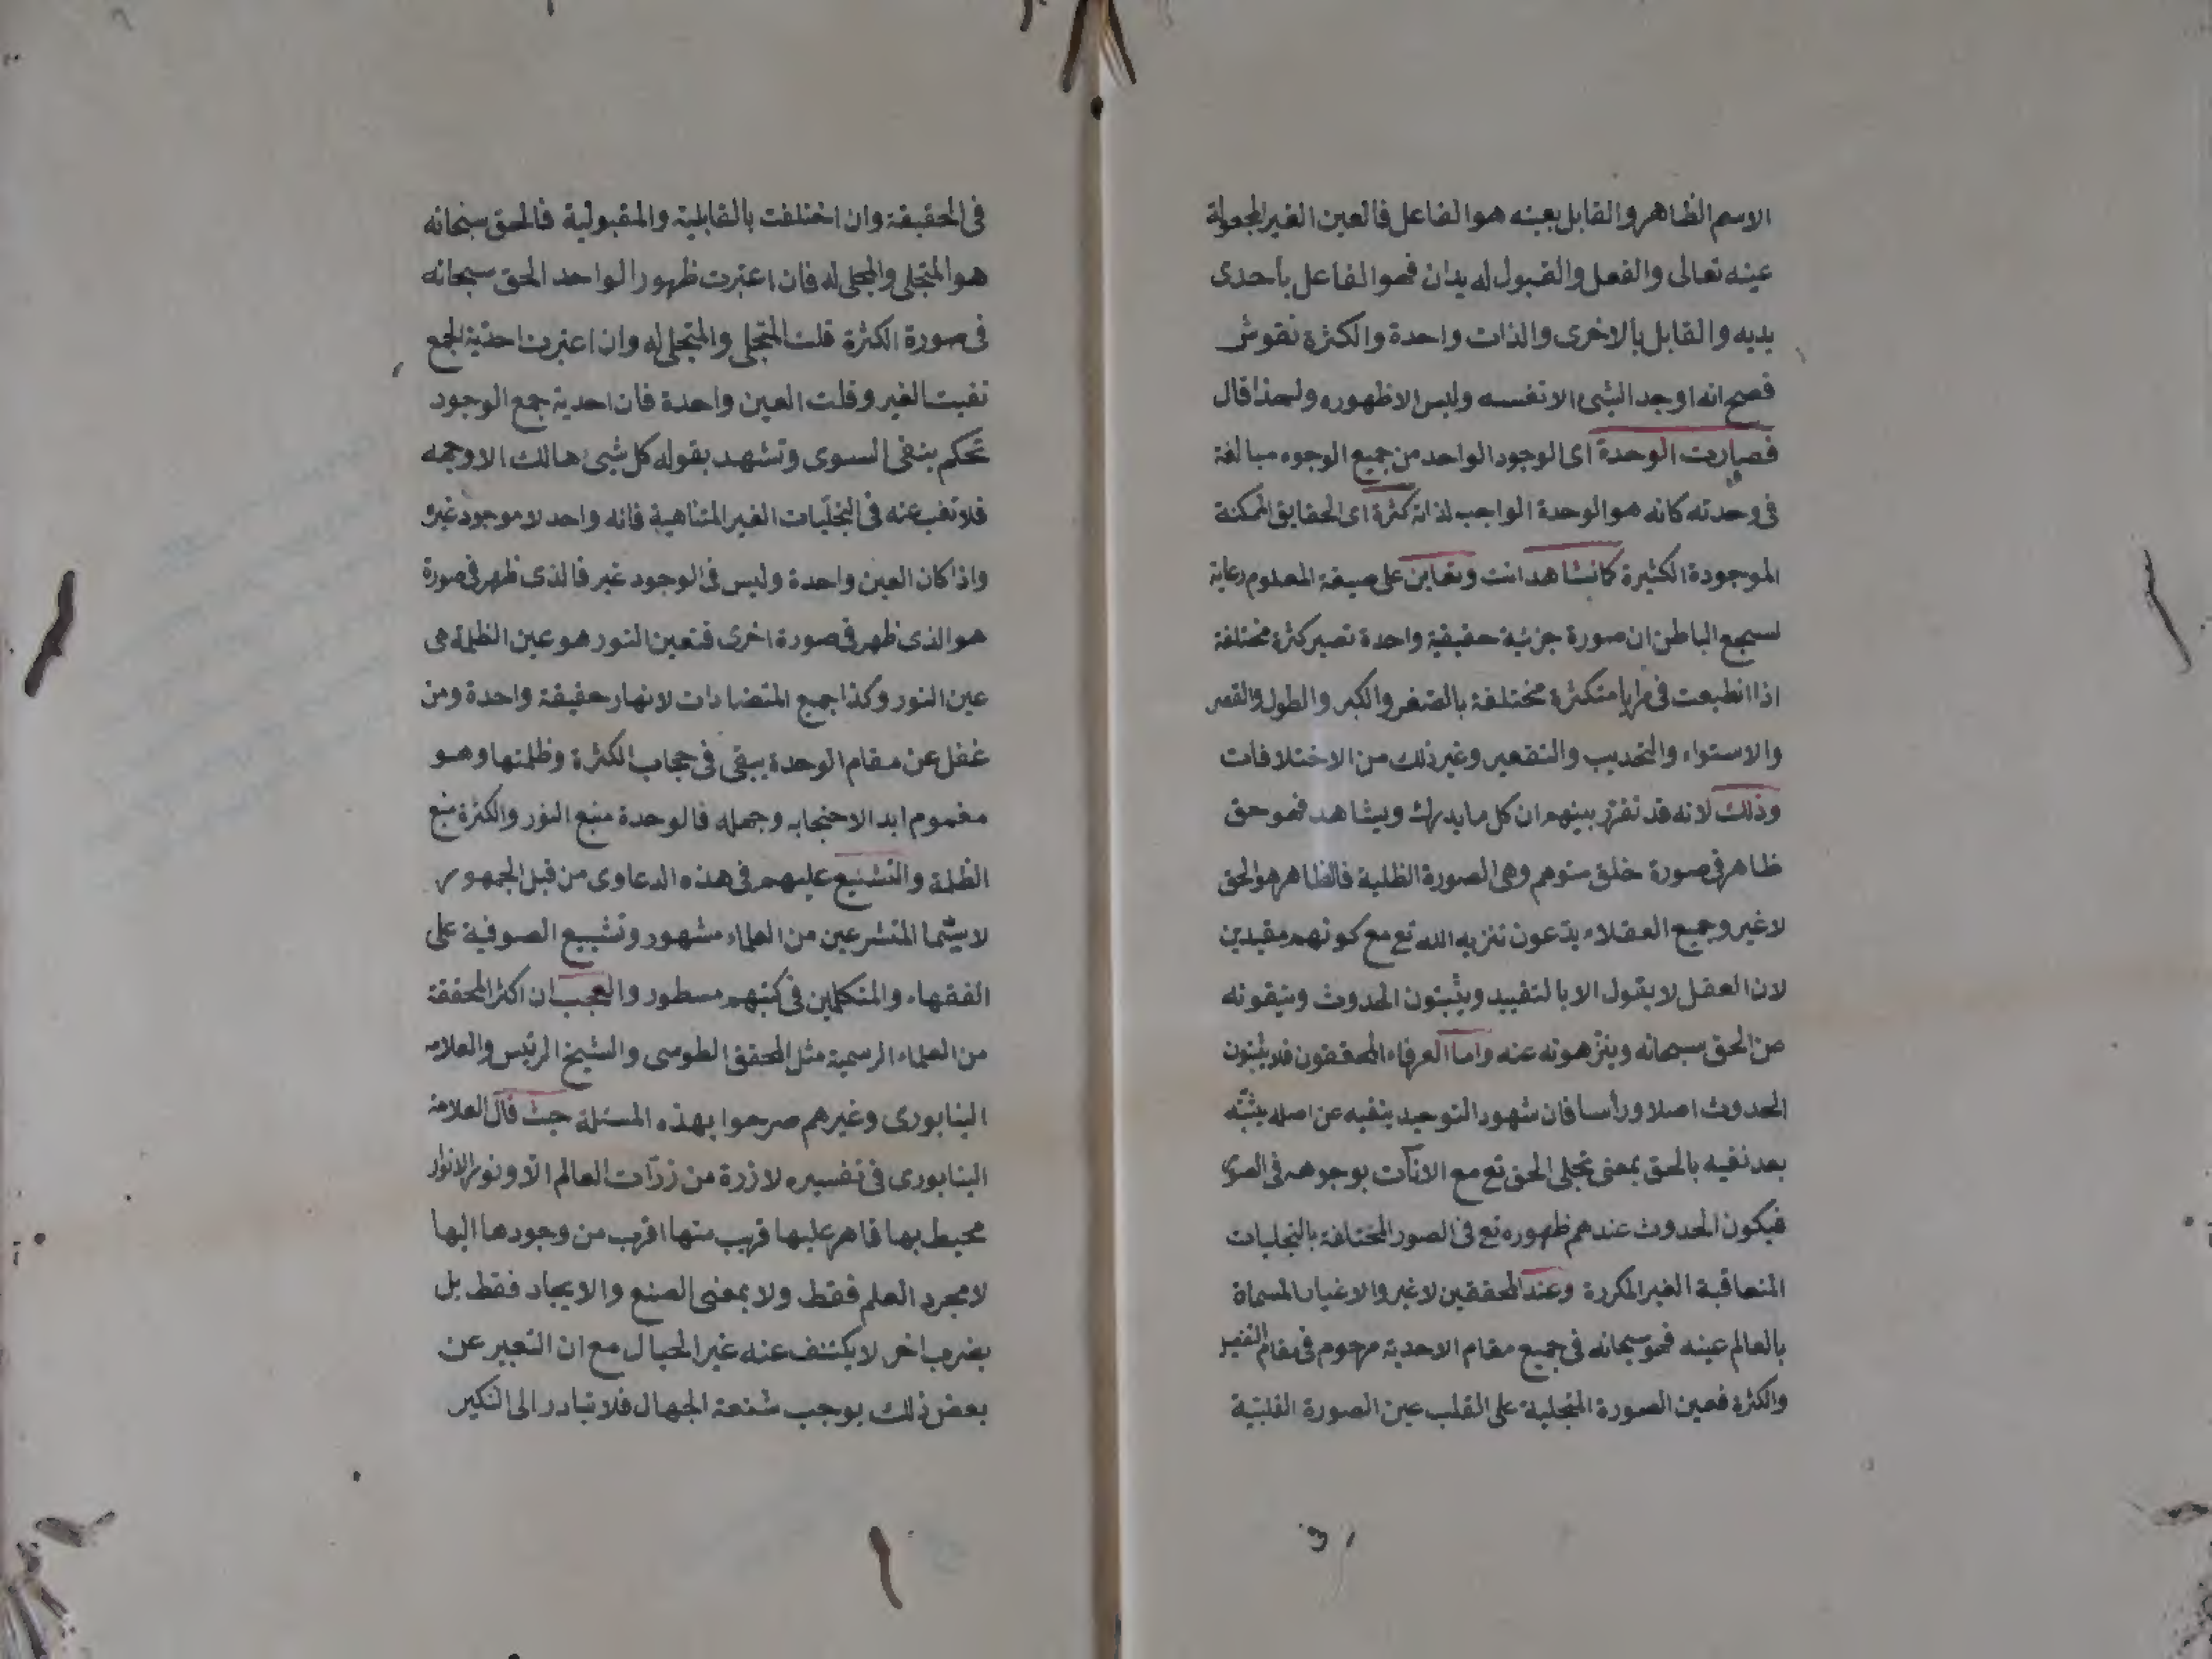 الاسم الظاهر والقابل بعينه هو الفاعل فالعين الغير المجعولة
عينه تعالى والفعل والقبول له يدان فهو الفاعل بأحدى
يديه والقابل بالاخرى والذات واحدة والكثرة نقوش
فصح انه اوجد الشئ الا نفسه وليس الا ظهوره ولهذا قال
فصارت الوحدة اى الوجود الواحد من جميع الوجوه مبالغة
فى وحدته كانه هو الوحدة الواجب لذاته كثرة اى الحقايق الممكنة
الموجودة الكثيرة كا تشاهد انت وتعاين على صيغة المعلوم رعاية
لسجع الباطن ان صورة جزئية حقيقية واحدة تصير كثرة مختلفة
اذا انطبعت فى مرايا متكثرة مختلفة بالصغر والكبر والطول والقصر
والاستواء والتحديب والتقعير وغير ذلك من الاختلافات
وذلك لانه قد تقرر بينهم ان كل ما يدرك ويشاهد فهو حق
ظاهر فى صورة خلق متوهم وهى الصورة الظلية فالظاهر هو الحق
لا غير وجميع العقلاء يدعون تنزيه الله تع مع كونهم مقيدين
لان العقل لا يقول الا بالتقييد ويثبتون الحدوث وينفونه
عن الحق سبحانه وينزهونه عنه واما العرفاء المحققون فلا يثبتون
الحدوث اصلا ورأسا فان شهود التوحيد ينفيه عن اصله يثبته
بعد نفيه بالحق بمعنى تجلى الحق تع مع الانآت بوجوهه فى الصور
فيكون الحدوث عندهم ظهوره تع فى الصور المختلفة بالتجليات
المتعاقبة الغير المكررة وعند المحققين لا غير والاغيار المسماة
بالعالم عينه فهو سبحانه فى جميع مقام الاحدية مرحوم فى مقام
والكثرة فعين الصورة المتجلية على القلب عين الصورة القلبية
فى الحقيقة وان اختلفت بالقابلية والمقبولية فالحق سبحانه
هو المتجلى والمجلى له فان اعتبرت ظهور الواحد الحق سبحانه
فى صورة الكثرة قلت المتجلى والمتجلى له وان اعتبرت احدية الجمع
نفيت الغير وقلت العين واحدة فان احدية جمع الوجود
تحكم بنفى السوى وتشهد بقوله كل شئ هالك الا وجهه
فلا تغب عنه فى التجليات الغير المتناهية فانه واحد لا موجود غيره
واذا كان العين واحدة وليس فى الوجود غير فالذى ظهر فى صورة
هو الذى ظهر فى صورة اخرى فتعين النور هو عين الظلمة هى
عين النور وكذا جميع المتضادات لانها حقيقة واحدة ومن
غفل عن مقام الوحدة يبقى فى حجاب الكثرة وظلمتها وهو
مغموم ابدا لاحتجابه وجهله فالوحدة منبع النور والكثرة منبع
الظلمة والتشنيع عليهم فى هذه الدعاوى من قبل الجمهور
لا سيّما المتشرعين من العلماء مشهور وتشنيع الصوفية على
الفقهاء والمتكلمين فى كتبهم مسطور والعجب ان اكثر المحققة
من العلماء الرسمية مثل المحقق الطوسى والشيخ الرئيس والعلامه
النيابورى وغيرهم صرحوا بهذه المسئلة حيث قال العلامة
النيابورى فى تفسيره لا ذرة من ذرّات العالم الّا ونور الانوار
محيط بها قاهر عليها قريب منها اقرب من وجودها اليها
لا مجرد العلم فقط ولا بمعنى الصنع والايجاد فقط بل
بضرب اخر لا يكشف عنه غير الخيال مع ان التعبير عن
بعض ذلك يوجب شنعة الجهال فلا تبادر الى النكير